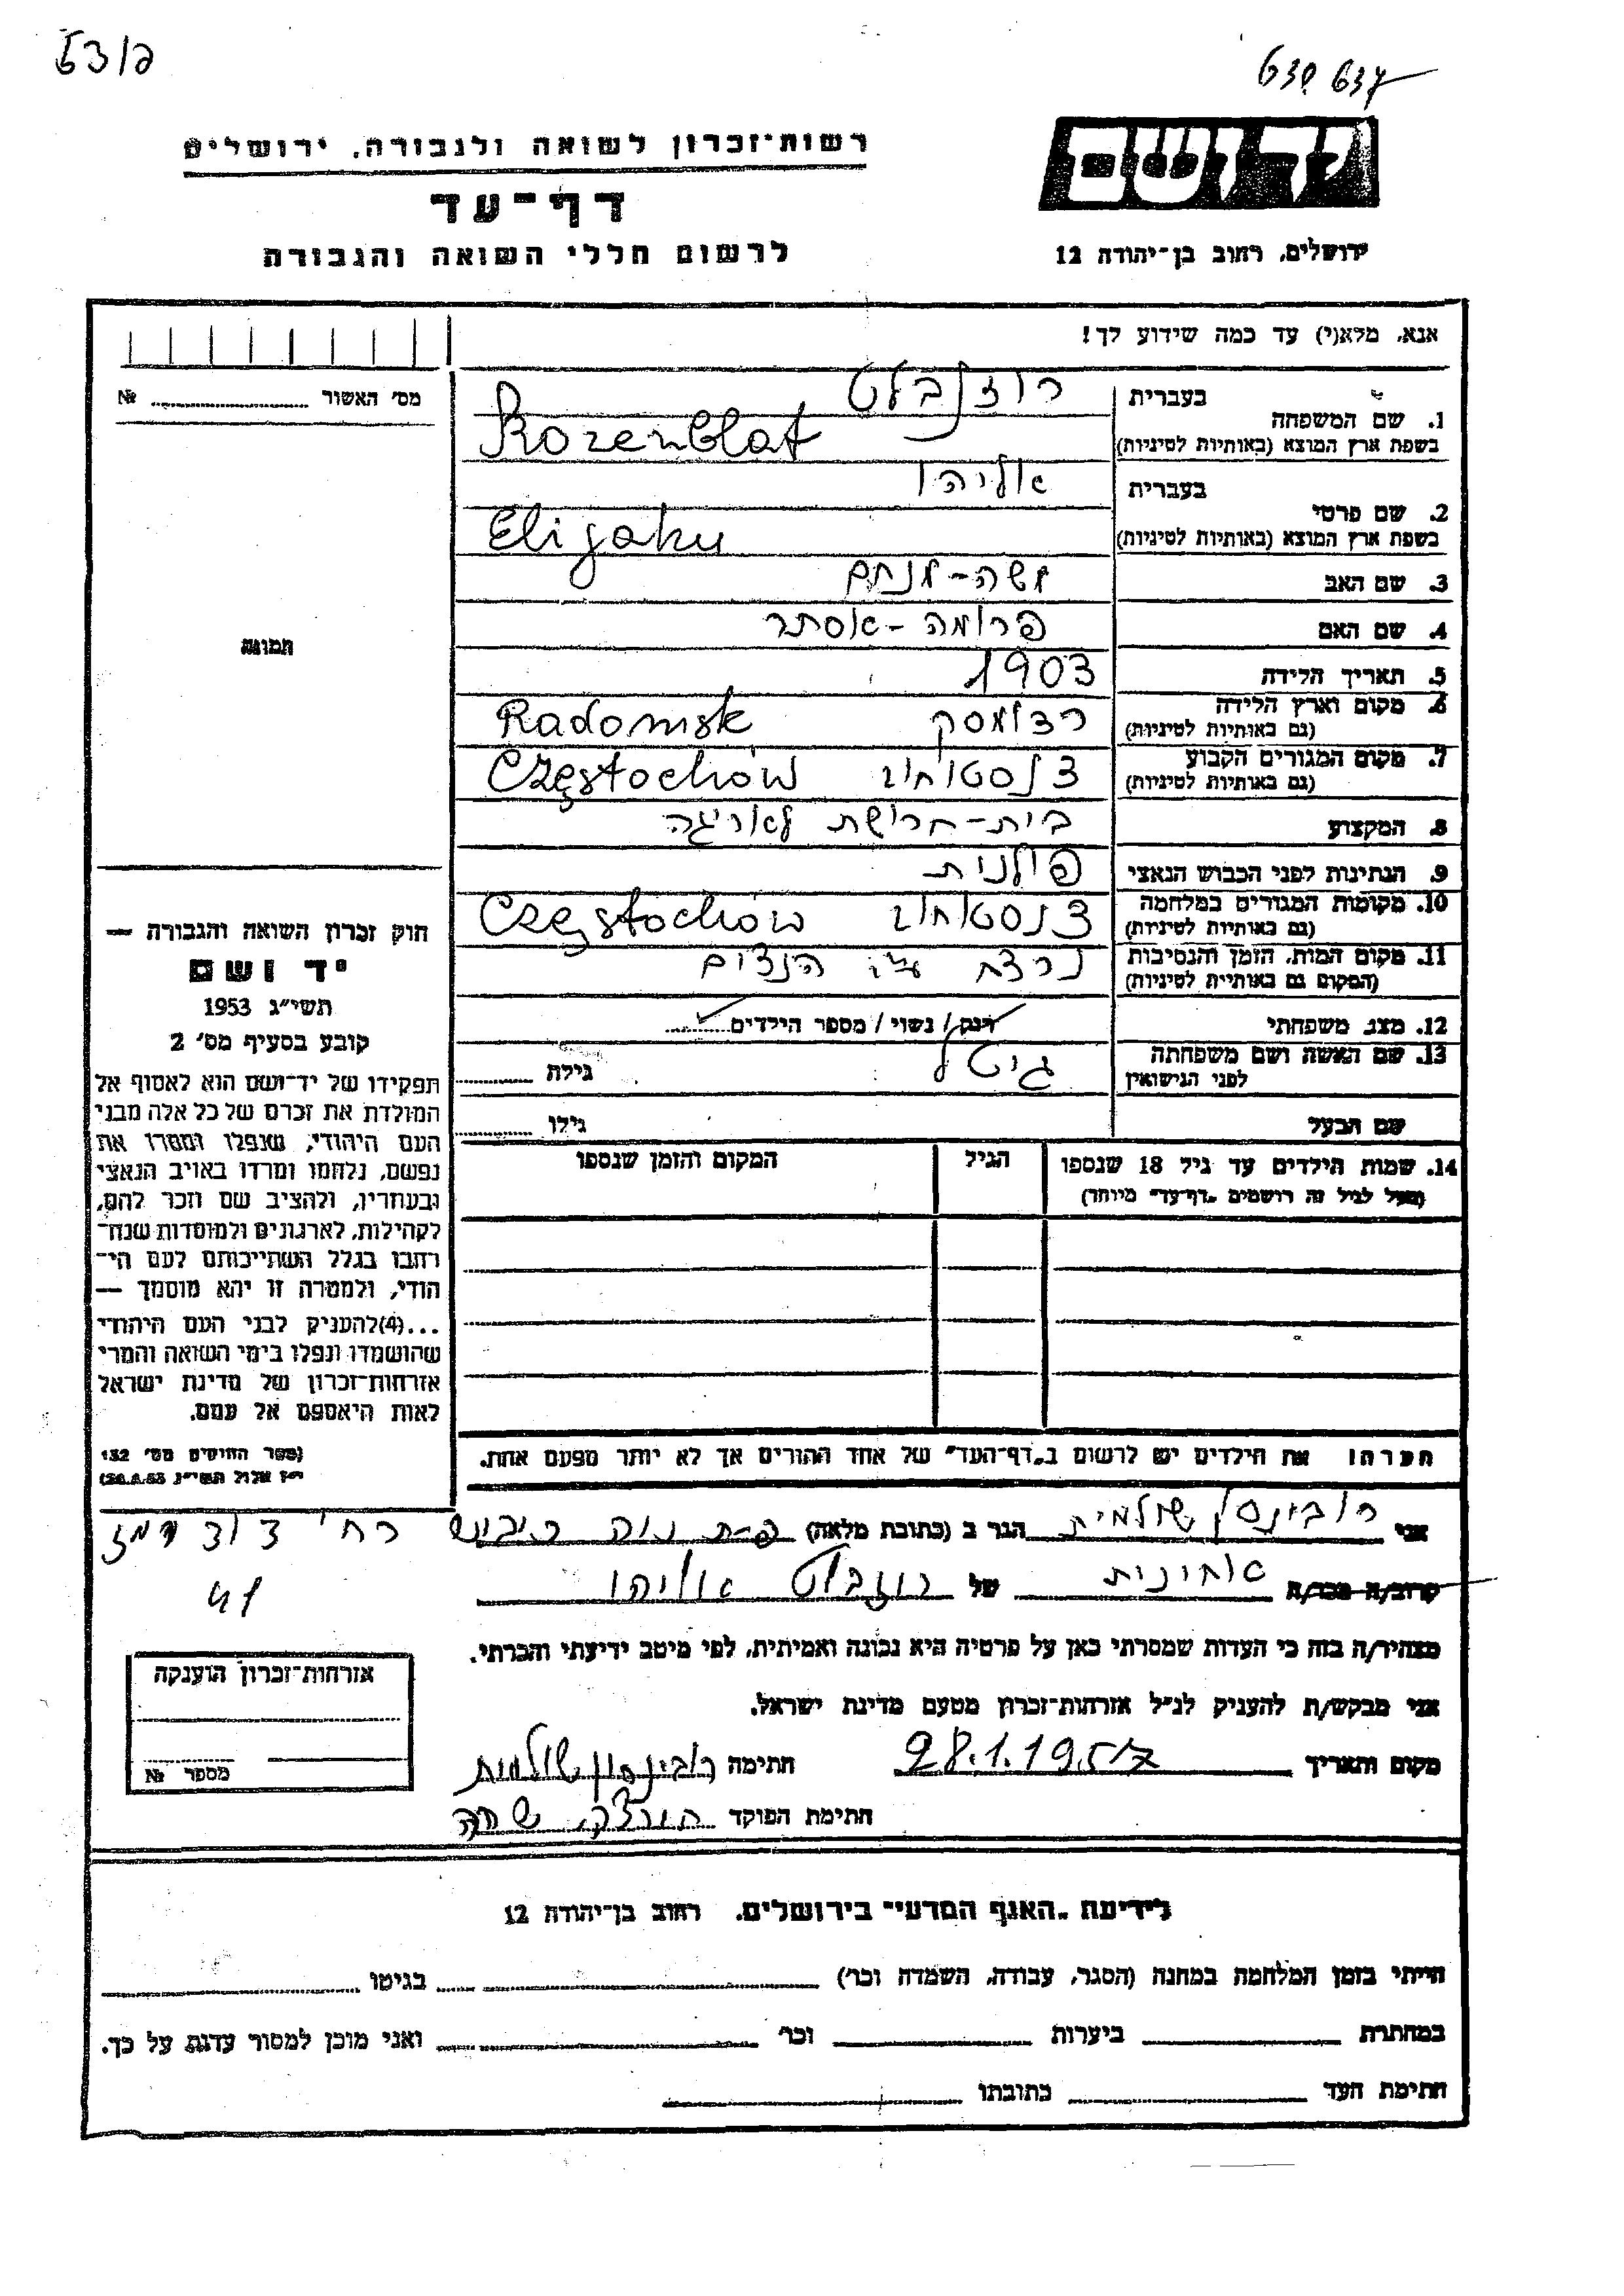 53/פ
630 637
יד ושם
רשות־זכרון לשואה ולגבורה, ירושלים
דף־עד
לרשום חללי השואה והגבורה
ירושלים, רחוב בן־יהודה 12
אנא, מלא(י) עד כמה שידוע לך!
מס' האשור № 
1. שם המשפחה בעברית רוזנבלט
בשפת ארץ המוצא (באותיות לטיניות) Rozenblat
2. שם פרטי בעברית אליהו
בשפת ארץ המוצא (באותיות לטיניות) Elijahu
3. שם האב משה-מנחם
4. שם האם פרומה-אסתר
5. תאריך הלידה 1903
6. מקום וארץ הלידה (גם באותיות לטיניות) רדומסק Radomsk
7. מקום המגורים הקבוע (גם באותיות לטיניות) צנסטוחוב Częstochów
8. המקצוע בית-חרושת לאריגה
9. הנתינות לפני הכבוש הנאצי פולנית
10. מקומות המגורים במלחמה (גם באותיות לטיניות) צנסטוחוב Częstochów
11. מקום המות, הזמן והנסיבות (המקום גם באותיות לטיניות) נרצח ע"י הנצים
12. מצב משפחתי רווק / נשוי / מספר הילדים
13. שם האשה ושם משפחתה לפני הנישואין גיטל גילה
שם הבעל גילו
14. שמות הילדים עד גיל 18 שנספו הגיל המקום והזמן שנספו
(מעל לגיל זה רושמים "דף־עד" מיוחד)
תמונה
חוק זכרון השואה והגבורה —
יד ושם
תשי"ג 1953
קובע בסעיף מס' 2
תפקידו של יד־ושם הוא לאסוף אל
המולדת את זכרם של כל אלה מבני
העם היהודי, שנפלו ומסרו את
נפשם, נלחמו ומרדו באויב הנאצי
ובעוזריו, ולהציב שם וזכר להם,
לקהילות, לארגונים ולמוסדות שנח־
רבו בגלל השתייכותם לעם הי־
הודי, ולמטרה זו יהא מוסמך —
...(4) להעניק לבני העם היהודי
שהושמדו ונפלו בימי השואה והמרי
אזרחות־זכרון של מדינת ישראל
לאות היאספם אל עמם.
(ספר החוקים מס' 132
י"ז אלול תשי"ג 28.8.53)
הערה: את הילדים יש לרשום ב"דף־העד" של אחד ההורים אך לא יותר מפעם אחת.
אני רובינסון שולמית הגר ב (כתובת מלאה) פ-ת נוה רח' דוד רמז
41
קרוב/ה מכר/ה אחינית של רוזנבלט אליהו
מצהיר/ה בזה כי העדות שמסרתי כאן על פרטיה היא נכונה ואמיתית, לפי מיטב ידיעתי והכרתי.
אני מבקש/ת להעניק לנ"ל אזרחות־זכרון מטעם מדינת ישראל.
מקום ותאריך 28.1.1957 חתימה רובינסון שולמית
חתימת הפוקד
אזרחות־זכרון הוענקה
מספר №
לידיעת "האגף המדעי" בירושלים, רחוב בן־יהודה 12
הייתי בזמן המלחמה במחנה (הסגר, עבודה, השמדה וכר') בגיטו
במחתרת ביערות וכר' ואני מוכן למסור עדות על כך.
חתימת העד כתובתו